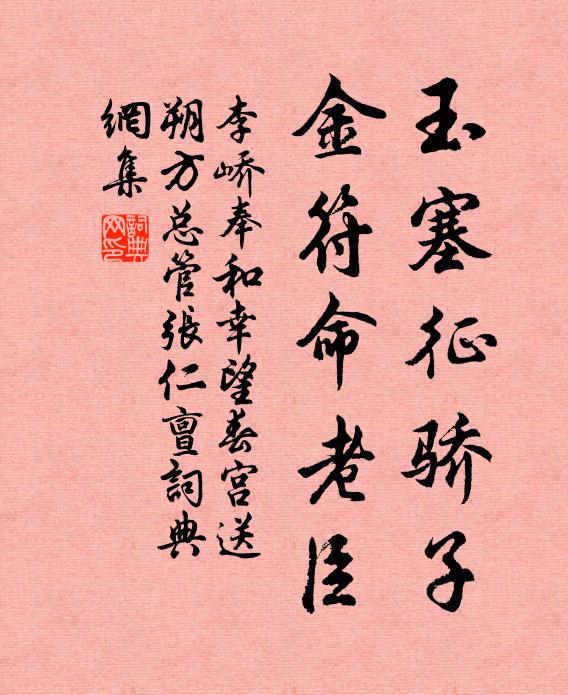 玉塞征骄子
金符命老臣
李峤奉和幸望春宫送
朔方总管张仁亶詞典
網集
詞典
网印